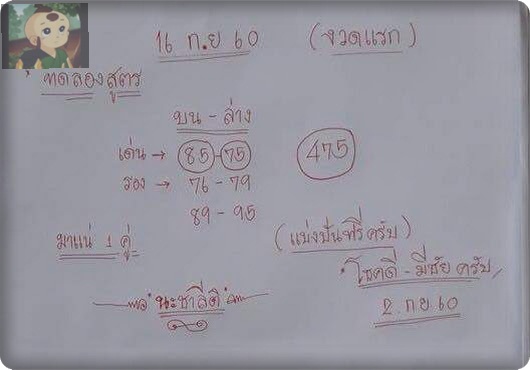 16 ก.ย 60 (งวดแรก)
ทดลองสูตร
บน - ล่าง
เด่น → 85 - 75 475
รอง → 76 - 79
89 - 95
มาแน่ 1 คู่ (แบ่งปันฟรีครับ)
โชคดี - มีชัย ครับ
นะชาลีติ
2. ก.ย 60